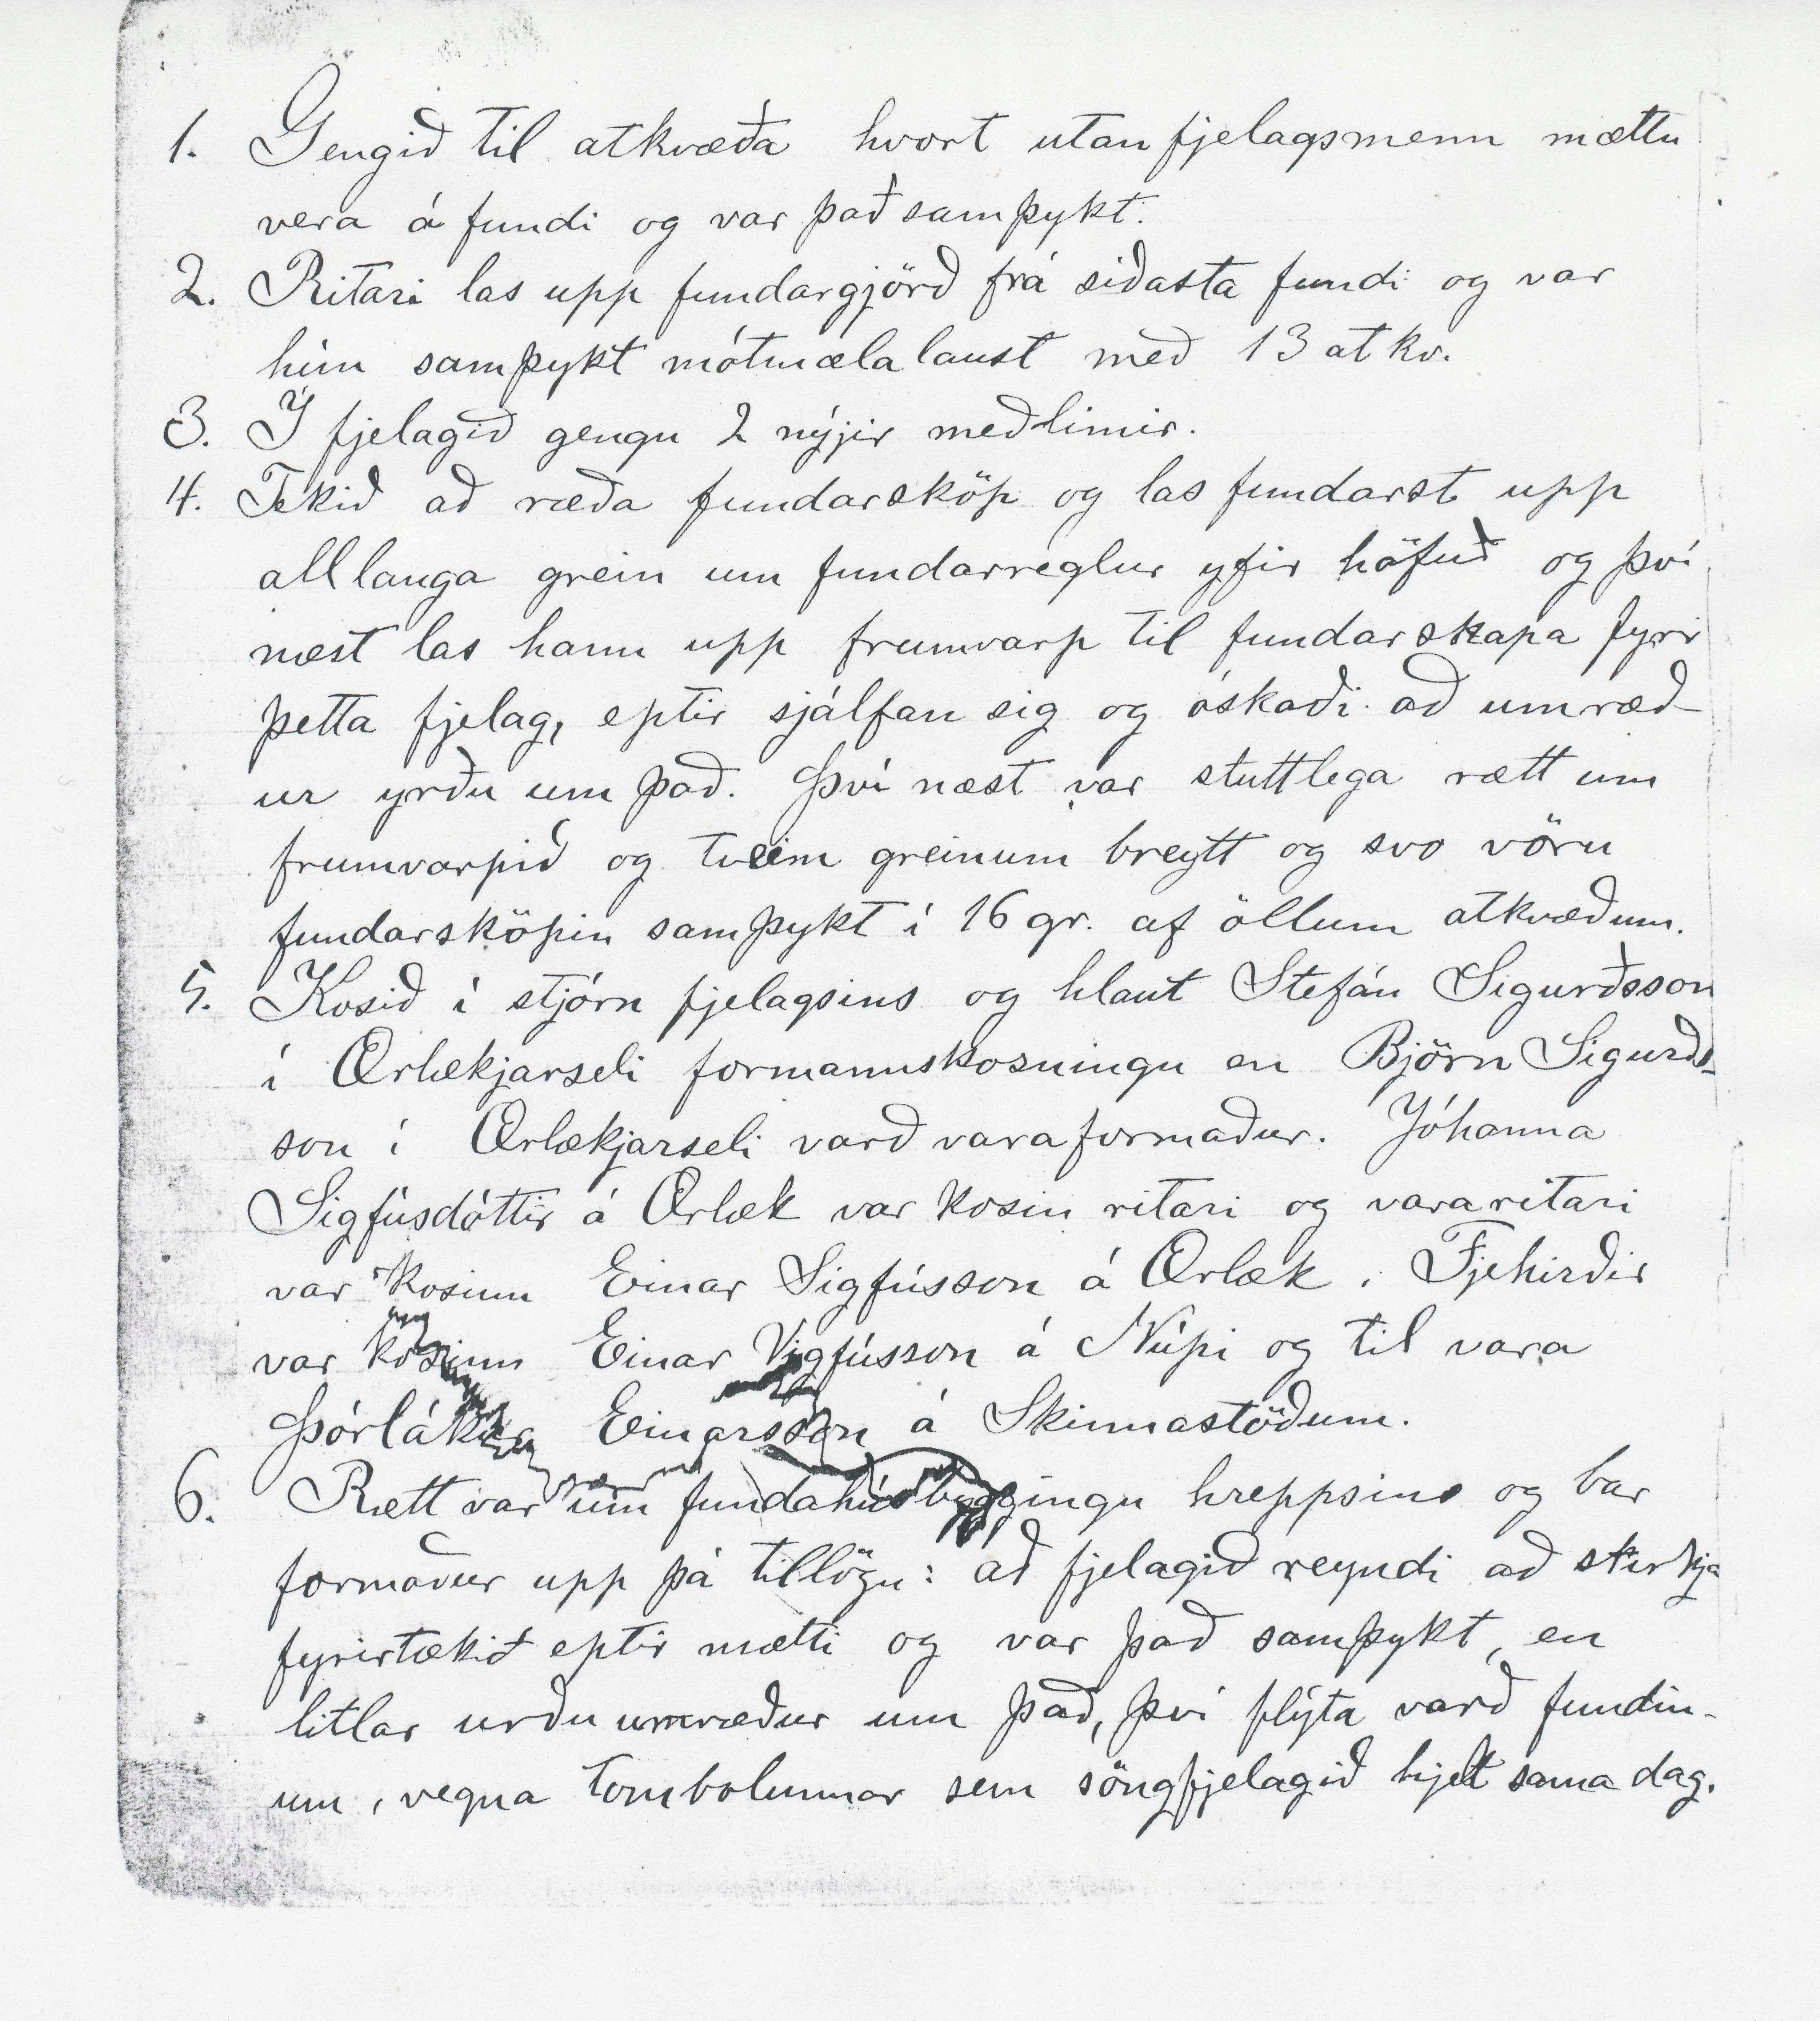 1. Gengið til atkvæða hvort utanfjelagsmenn mættu
vera á fundi og var það samþykt.
2. Ritari las upp fundargjörð frá síðasta fundi og var
hún samþykt mótmælalaust með 13 atkv.
3. Í fjelagið gengu 2 nýjir meðlimir.
4. Tekið að ræða fundarsköp og las fundarst. upp
all langa grein um fundarreglur yfir höfuð og því
næst las hann upp frumvarp til fundarskapa fyrir
þetta fjelag, eptir sjálfan sig og óskaði að umræð-
ur yrðu um það. Því næst var stuttlega rætt um
frumvarpið og tveim greinum breytt og svo vöru
fundarsköpin samþykt í 16 gr. af öllum atkvæðum.
5. Kosið í stjórn fjelagsins og hlaut Stefán Sigurðsson
í Ærlækjarseli formannskosningu en Björn Sigurðs-
son í Ærlækjarseli varð varaformaður. Jóhanna
Sigfúsdóttir á Ærlæk var kosin ritari og vararitari
var kosinn Einar Sigfússon á Ærlæk. Fjehirðir
var kosinn Einar Vigfússon á Núpi og til vara
Einarsson á Skinnastöðum.
6. Rætt var um fundahúsbyggingu hreppsins og bar
formaður upp þá tillögu: að fjelagið reyndi að stirkja
fyrirtækið eptir mætti og var það samþykt, en
litlar urðu umræður um það, því flýta varð fundin-
um, vegna tombolunnar sem söngfjelagið hjelt sama dag.